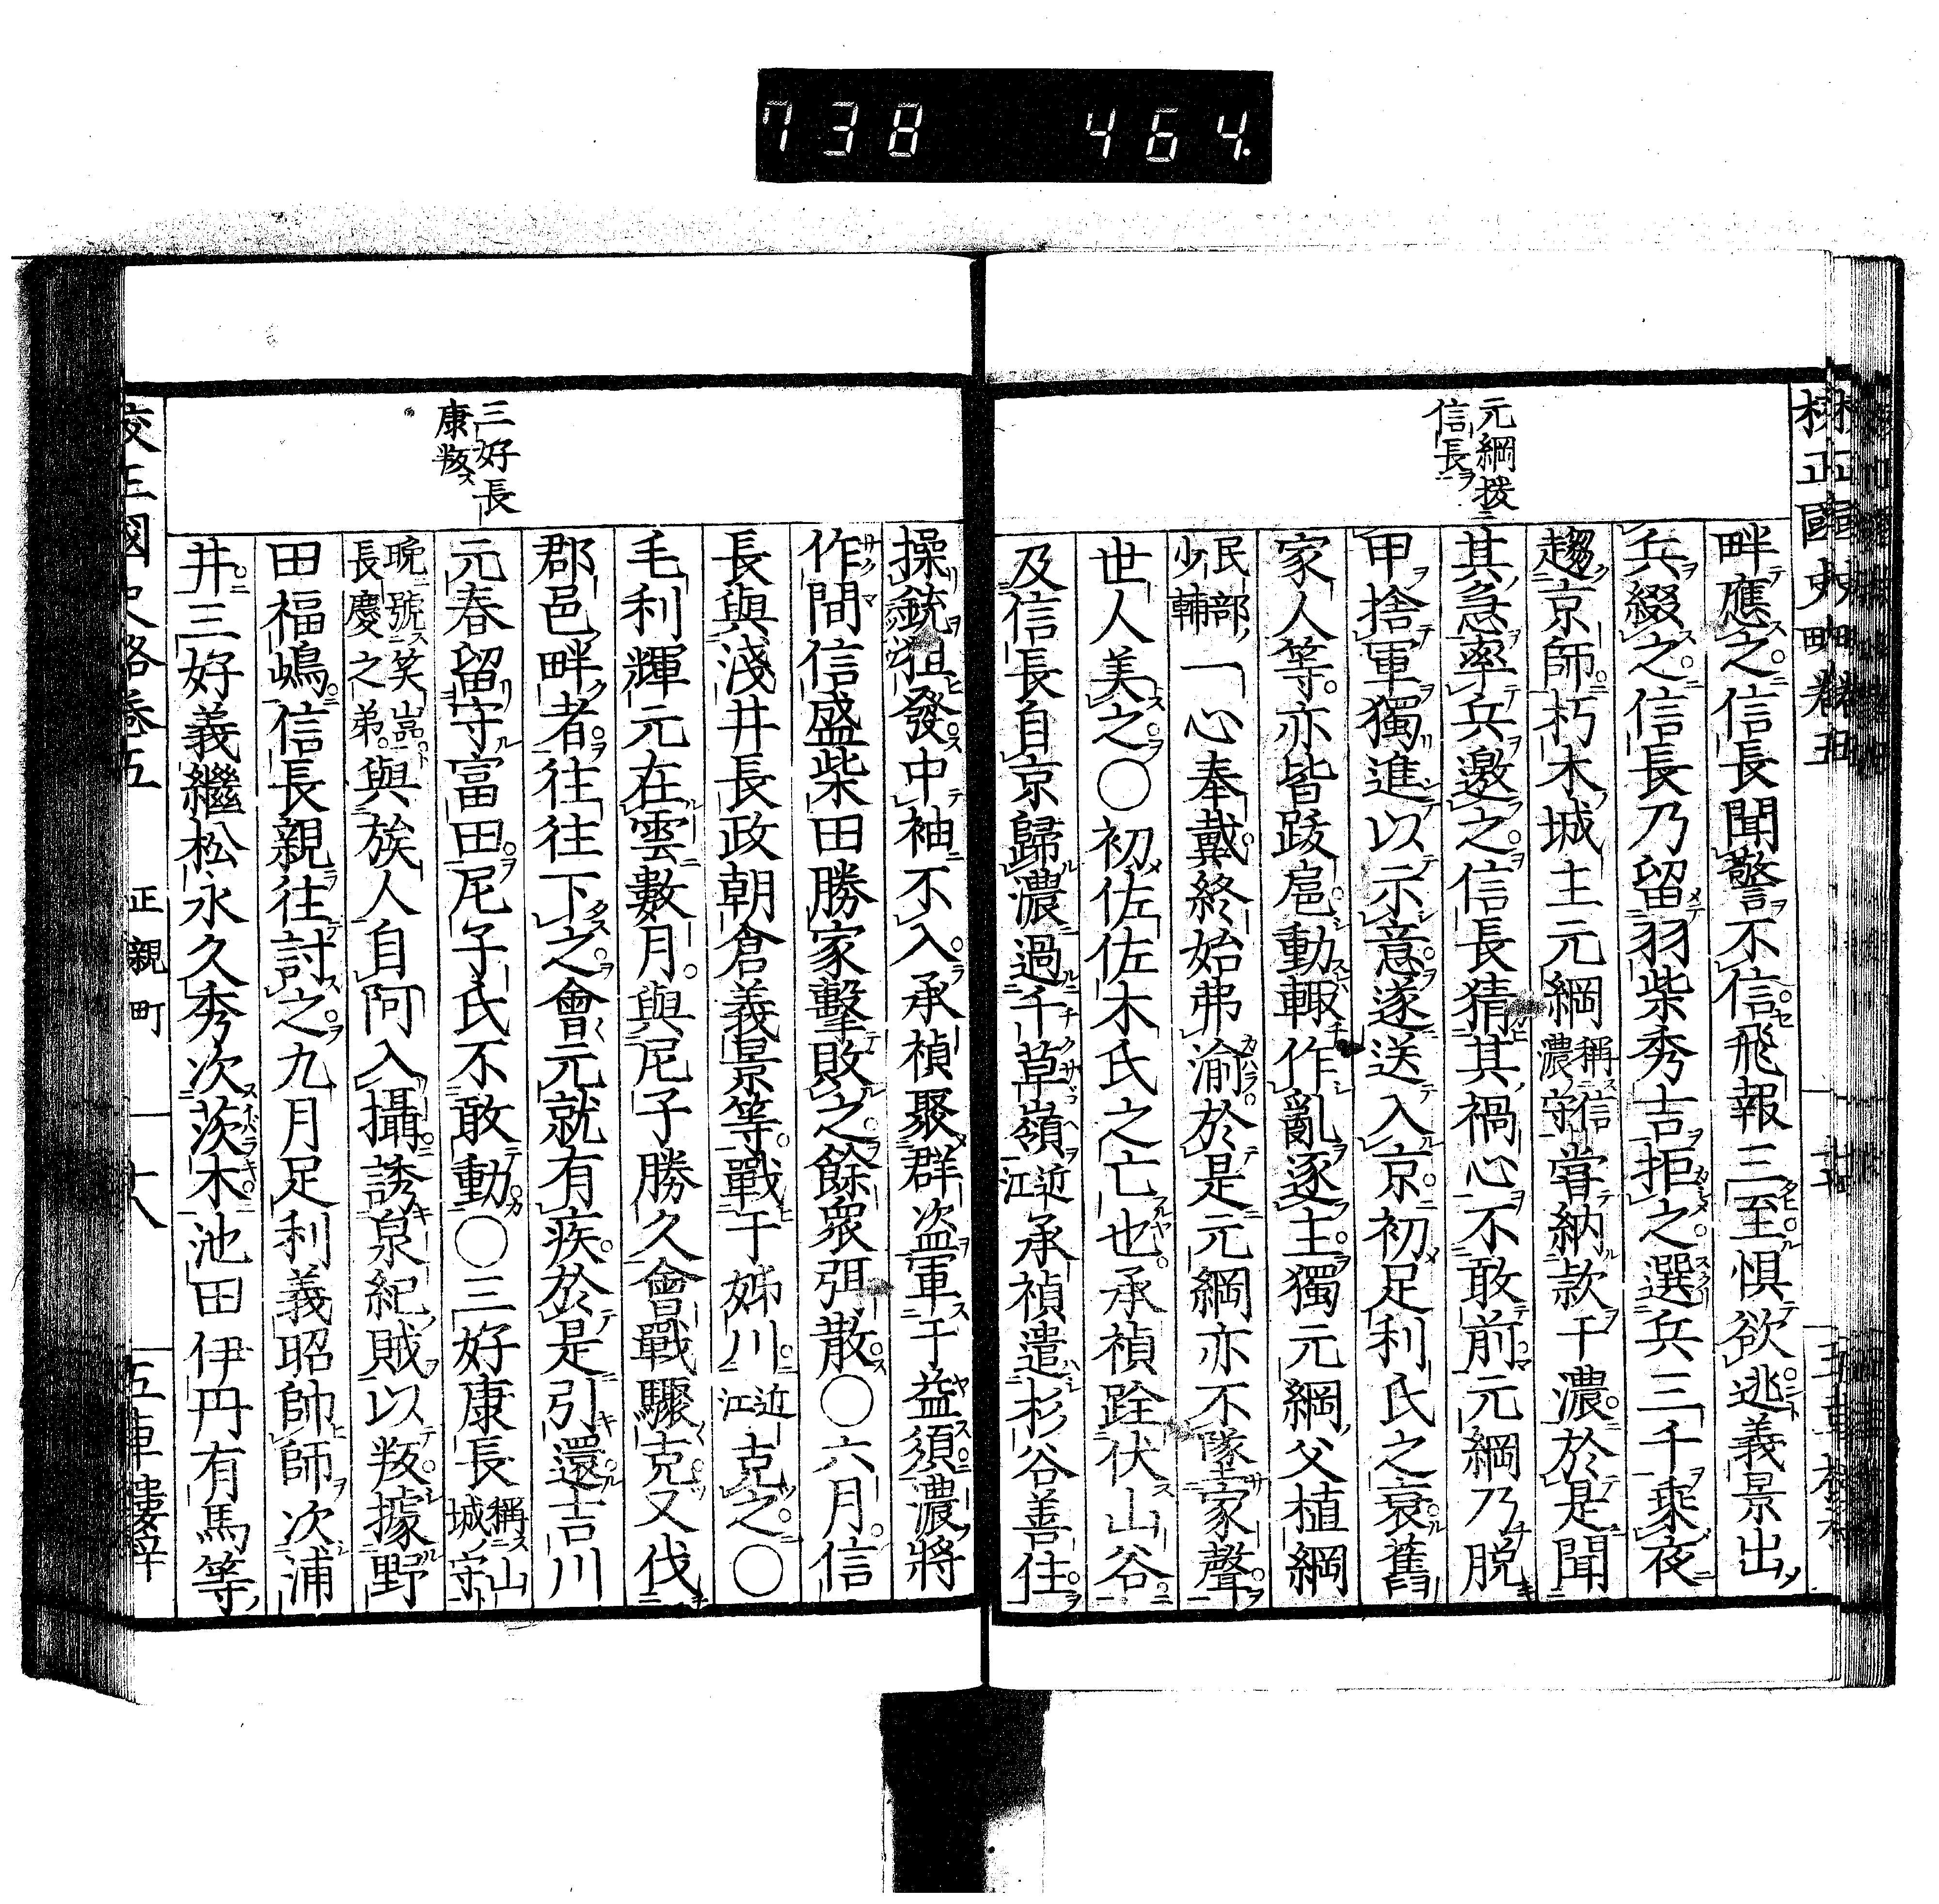 738 464.
元綱援
信長
畔應之信長聞警不信飛報三至惧欲逃義景出
兵綴之信長乃留羽柴秀吉拒之選兵三千乘夜
趨京師朽木城主元綱稱信濃守嘗納款于濃於是聞
其急率兵邀之信長猜其禍心不敢前元綱乃脱
甲捨軍獨進以示意遂送入京初足利氏之衰舊
家人等亦皆跋扈動輙作亂逐主獨元綱父植綱
民部少輔一心奉戴終始弗渝於是元綱亦不墜家聲
世人美之〇初佐佐木氏之亡也承禎跧伏山谷
及信長自京歸濃過千草嶺近江承禎遣杉谷善住
三好長
康叛
操銃狙發中袖不入承禎聚群盗軍于益須濃將
作間信盛柴田勝家擊敗之餘衆弭散〇六月信
長與淺井長政朝倉義景等戰于姊川近江克之〇
毛利輝元在雲數月與尼子勝久會戰驟克又伐
郡邑畔者往往下之會元就有疾於是引還吉川
元春留守富田尼子氏不敢動〇三好康長稱山城守
晩號笑嵓長慶之弟與族人自阿入攝誘泉紀賊以叛據野
田福嶋信長親往討之九月足利義昭帥師次浦
井三好義繼松永久秀次茨木池田伊丹有馬等
校正國史略卷五 正親町 五車樓梓